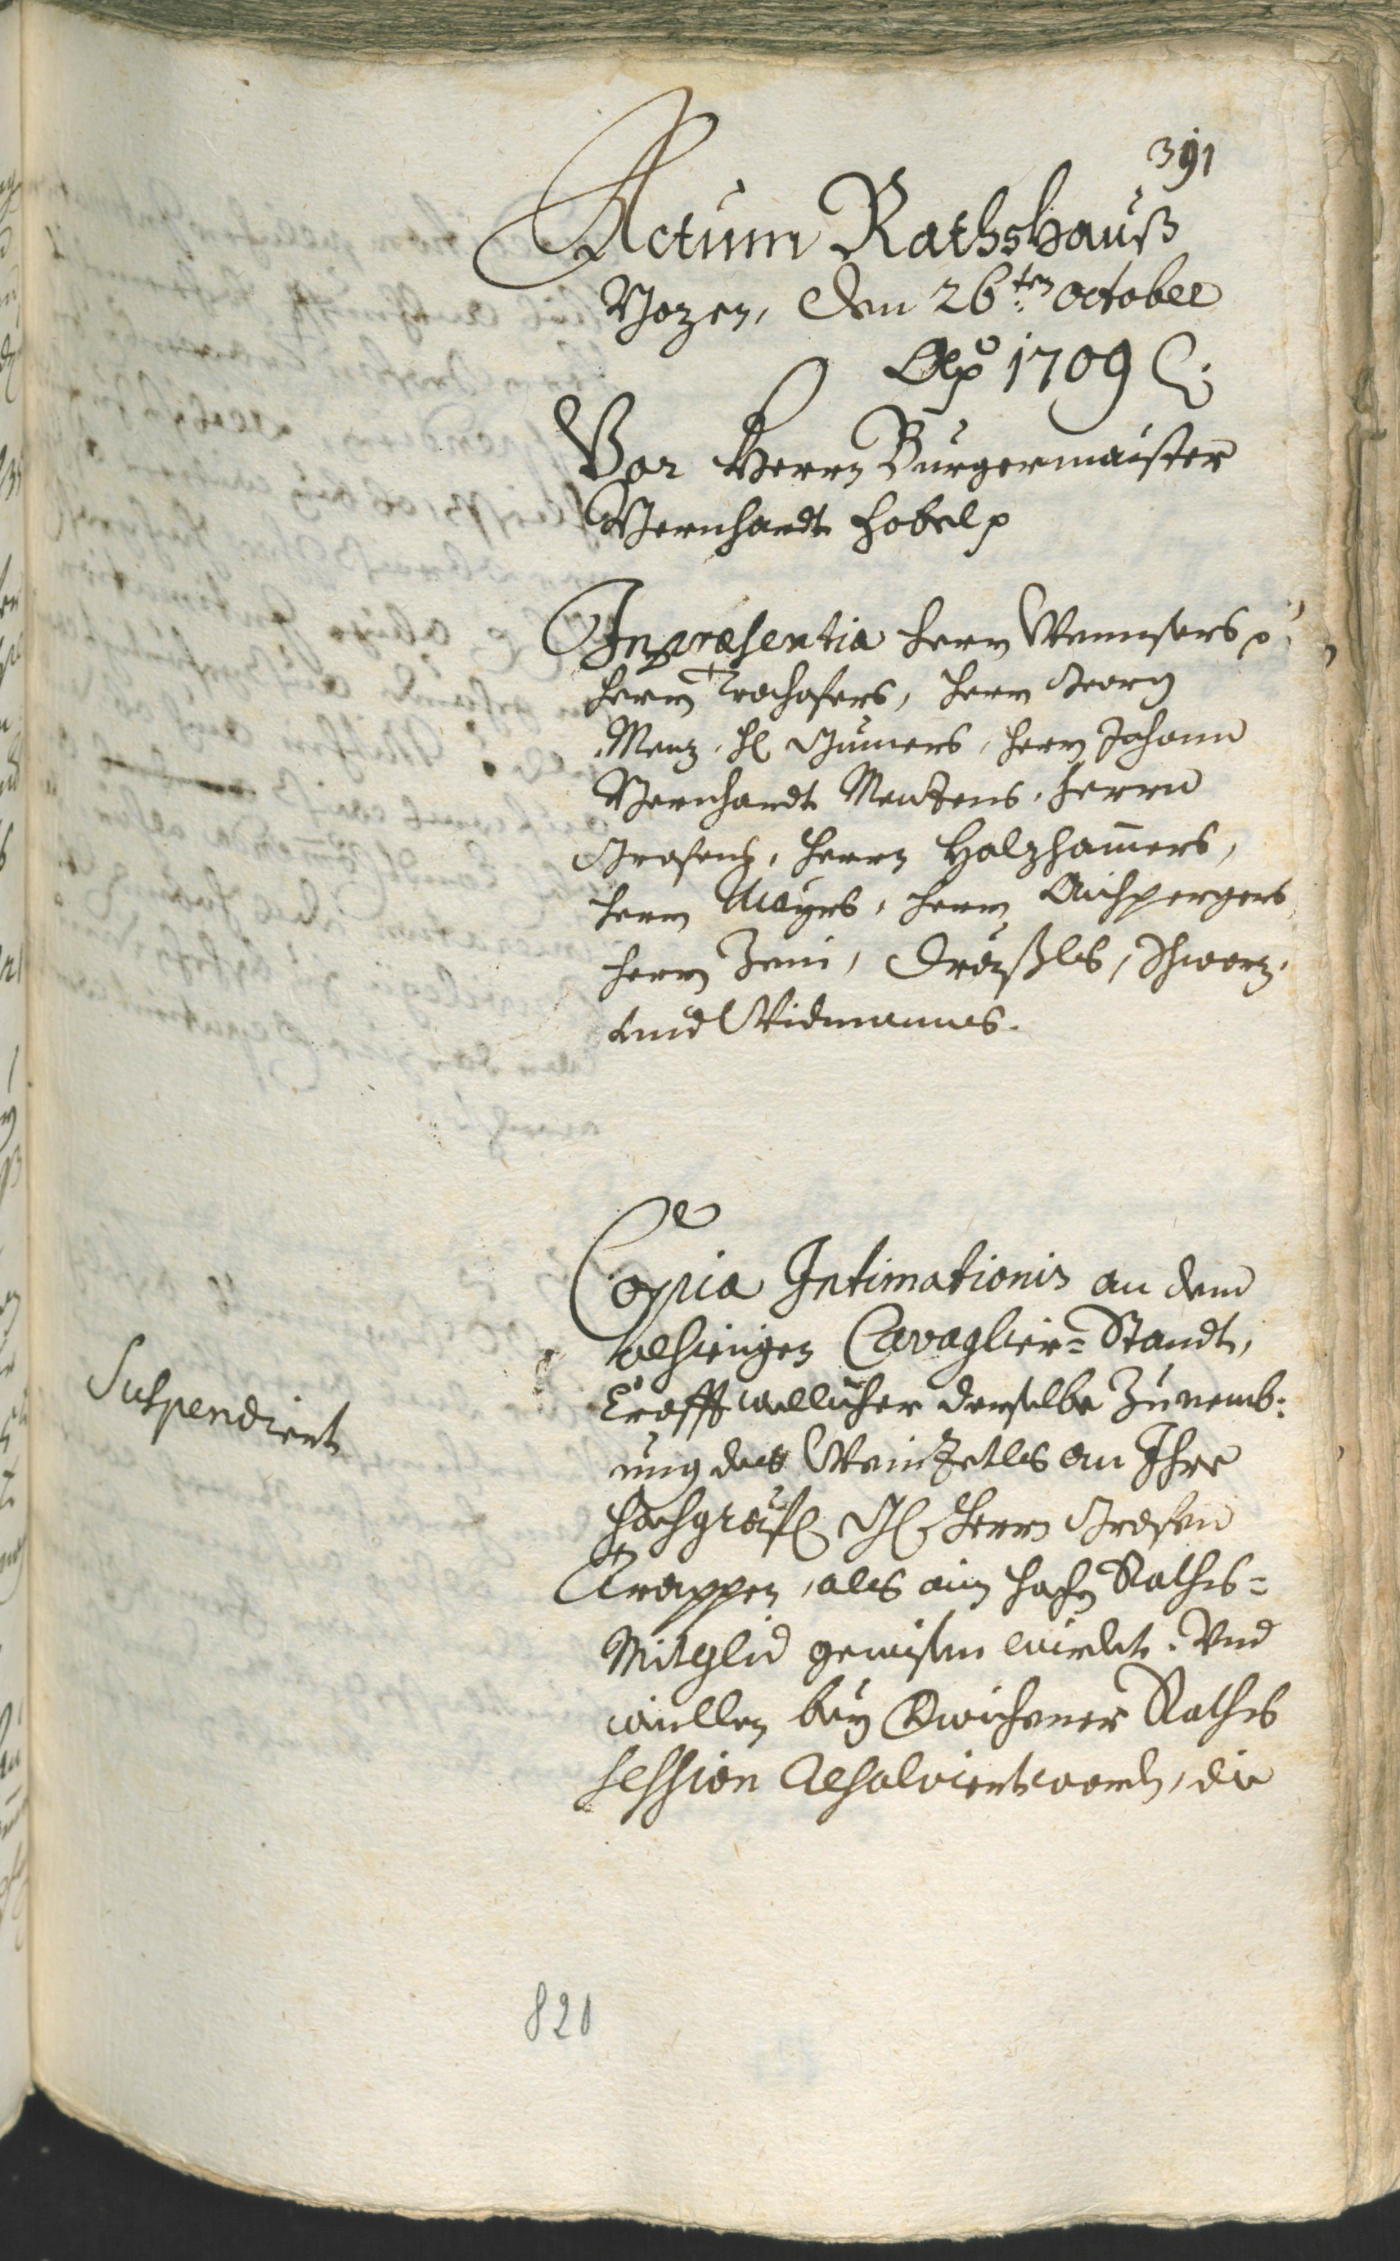 391
Actum Rathshauß
Bozen, den 26ten october
Aõ 1709
Vor Herrn Burgermaister
Bernhardt Hobel p
In præsentia Herrn Wennsers p
Herrn Trochofers, Herrn Georg
Menz, H: Gumers, Herrn Johann
Bernhardt Menzens, Herrn
Grafens, Herrn Holzhamers,
Herrn Mayrs, Herrn Aichpergers
Herrn Zeni, Dräxls, Schwarz,
und Widmanns.
Copia Intimationis an dem
alhieigen Cavaglier=Standt,
Suspendiert
Crafft wellicher derselbe zu nemb:
ung des Weinzetls an Ihre
Hochgräfl: G: Herrn Grafen
Trappen, als ain hochen Raths=
Mitglid gewisen wirdet. Und
weillen bey Brixner Raths
session resolviert worden, die
820